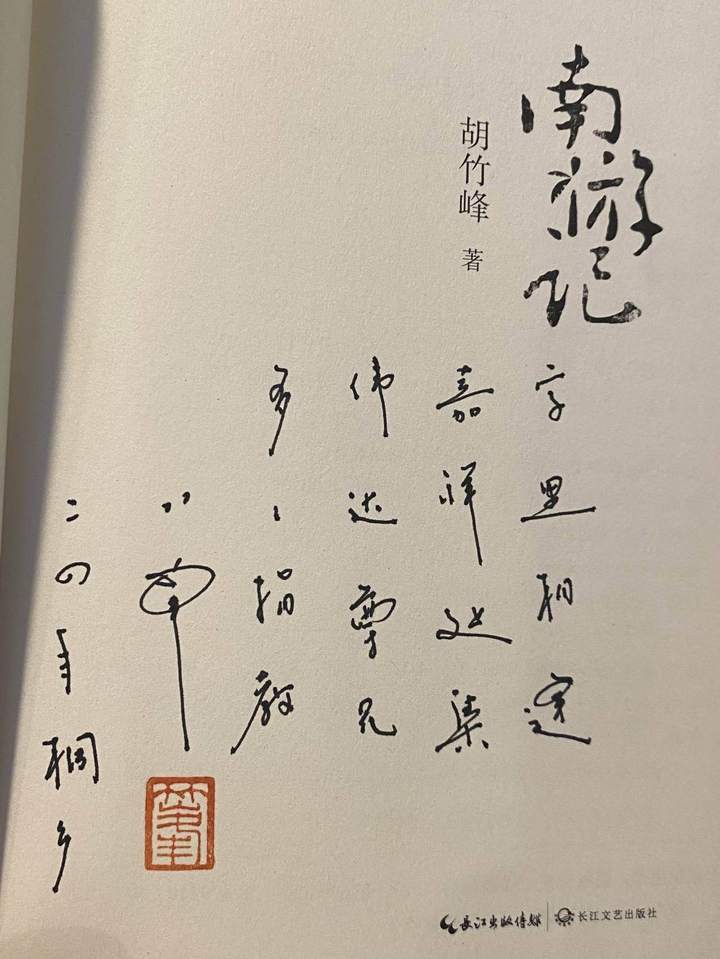 南游记
胡竹峰 著
字里相逢
嘉祥延集
伟达尊兄
多〻指教
二四年桐乡
长江出版传媒 长江文艺出版社